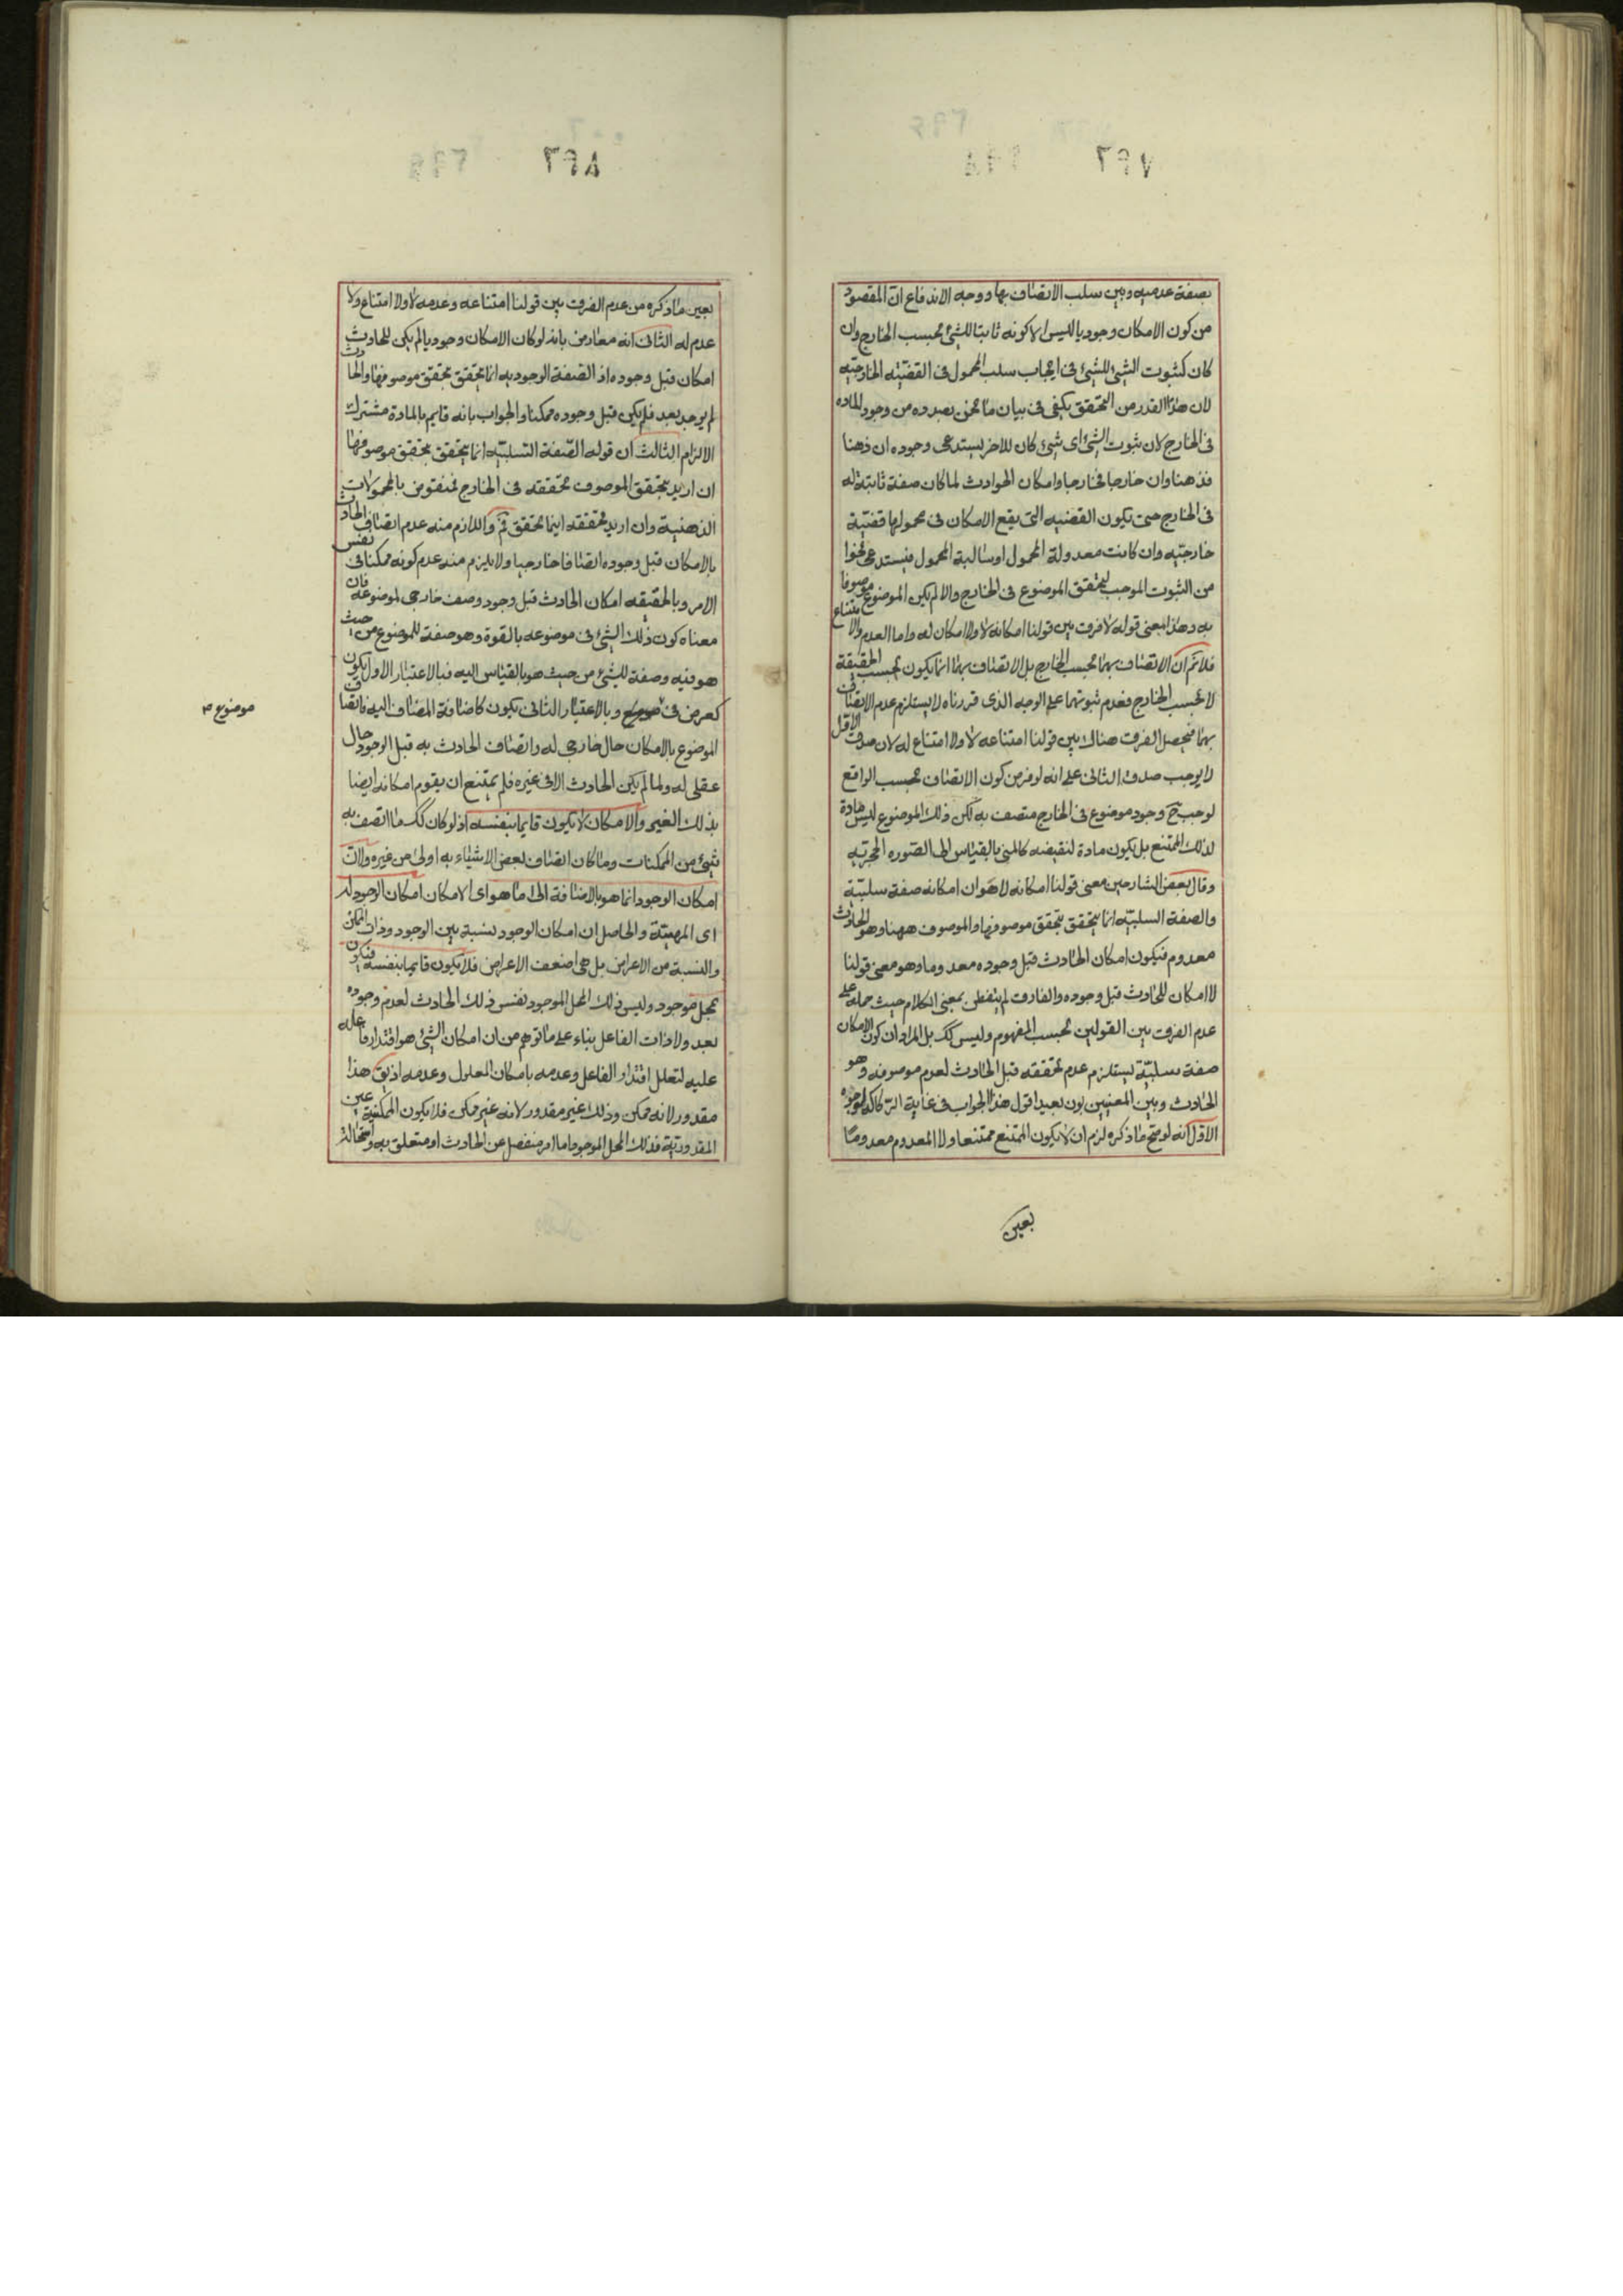 ٢٩٧
بصفة عدميه وبين سلب الاتصاف بها ووجه الاندفاع ان المقصود
من كون الامكان وجوديا ليس الا كونه ثابتا للشئ بحسب الخارج وان
كان كثبوت الشئ للشئ فى ايجاب سلب المحمول فى القضيّه الخارجيّه
لان هذا القدر من التحقق يكفى فى بيان ما نحن بصدده من وجود الماده
فى الخارج لان ثبوت الشئ اى شئ كان للاخر يستدعى وجوده ان ذهنا
فذهنا وان خارجا فخارجا وامكان الحوادث لما كان صفة ثابتة له
فى الخارج حتى تكون القضيه التى يقع الامكان فى محمولها قضيّة
خارجيّه وان كانت معدولة المحمول او سالبة المحمول فيستدعى نحوا
من الثبوت الموجب لتحقق الموضوع فى الخارج والا لم يكن الموضوع موصوفا
به وهذا معنى قوله لا فرق بين قولنا امكانه لا ولا امكان له واما العدم والامتناع
فلانم ان الاتصاف بهما بحسب الخارج بل الاتصاف بهما انما يكون بحسب الحقيقة
لا بحسب الخارج فعدم ثبوتهما على الوجه الذى قررناه لا يستلزم عدم الاتصاف
بهما فيحصل الفرق هناك بين قولنا امتناعه لا ولا امتناع له لان صدق الاول
لا يوجب صدق الثانى على انه لو فرض كون الاتصاف بحسب الواقع
لوجب ح وجود موضوع فى الخارج متصف به لكن ذلك الموضوع ليس مادة
لذلك الممتنع بل يكون مادة لنقيضه كالمنى بالقياس الى الصوره الحجريّه
وقال بعض الشارحين معنى قولنا امكانه لا هو ان امكانه صفة سلبيّة
والصفة السلبيّه انما يتحقق بتحقق موصوفها والموصوف ههنا وهو الحادث
معدوم فيكون امكان الحادث قبل وجوده معدوما وهو معنى قولنا
لا امكان للحادث قبل وجوده والفارق لم يتفطن بمعنى الكلام حيث حمله على
عدم الفرق بين القولين بحسب المفهوم وليس كك بل المراد ان كون الامكان
صفة سلبيّة يستلزم عدم تحققه قبل الحادث لعدم موصوفه وهو
الحادث وبين المعنيين بون بعيد اقول هذا الجواب فى غاية الركاكة لوجوه
الاوّل انه لو صح ما ذكره لزم ان لا يكون الممتنع ممتنعا ولا المعدوم معدوما
بعين
٢٩٨
بعين ما ذكره من عدم الفرق بين قولنا امتناعه وعدمه لا ولا امتناع ولا
عدم له الثانى انه معارض بانه لو كان الامكان وجوديا لم يكن للحادث
امكان قبل وجوده اذ الصفة الوجوديه انما يتحقق بتحقق موصوفها والحادث
لم يوجد بعد فلم يكن قبل وجوده ممكنا والجواب بانه قايم بالمادة مشترك
الالزام الثالث ان قوله الصّفة السّلبيّه انما يتحقق بتحقق موصوفها
ان اريد بتحقق الموصوف تحققه فى الخارج فمنقوض بالمحمولات
الذهنية وان اريد تحققه اينما تحقق ثم واللازم منه عدم اتصاف الحادث
بالامكان قبل وجوده اتصافا خارجيا ولا يلزم منه عدم كونه ممكنا فى نفس
الامر وبالحقيقه امكان الحادث قبل وجود وصف خارجى لموضوعه فان
معناه كون ذلك الشئ فى موضوعه بالقوة وهو صفة للموضوع من حيث
هو فيه وصفة للشئ من حيث هو بالقياس اليه فبالاعتبار الاول يكون
كعرض فى موضوع وبالاعتبار الثانى يكون كاضافة المضاف اليه فاتصاف
الموضوع بالامكان حال خارجى له واتصاف الحادث به قبل الوجود حال
عقلى له ولما لم يكن الحادث الا فى غيره فلم يمتنع ان يقوم امكانه ايضا
بذلك الغير والامكان لا يكون قايما بنفسه اذ لو كان كك ما اتصف به
شئ من الممكنات وما كان اتصاف بعض الاشياء به اولى من غيره ولان
امكان الوجود انما هو بالاضافة الى ما هو اى الامكان امكان الوجود له
اى المهيّة والحاصل ان امكان الوجود نسبة بين الوجود وذات الممكن
والنسبة من الاعراض بل هى اضعف الاعراض فلا يكون قايما بنفسه فيكون
بمحل موجود وليس ذلك المحل الموجود نفس ذلك الحادث لعدم وجوده
بعد ولا ذات الفاعل بناء على ما توهم من ان امكان الشئ هو اقتدار فاعله
عليه لتعلل اقتدار الفاعل وعدمه بامكان المعلول وعدمه اذ يق هذا
مقدور لانه ممكن وذلك غير مقدور لانه غير ممكن فلا يكون الممكنية عين
المقدوريّة فذلك المحل الموجود اما امر منفصل عن الحادث او متعلق به واستحالة
موضوع